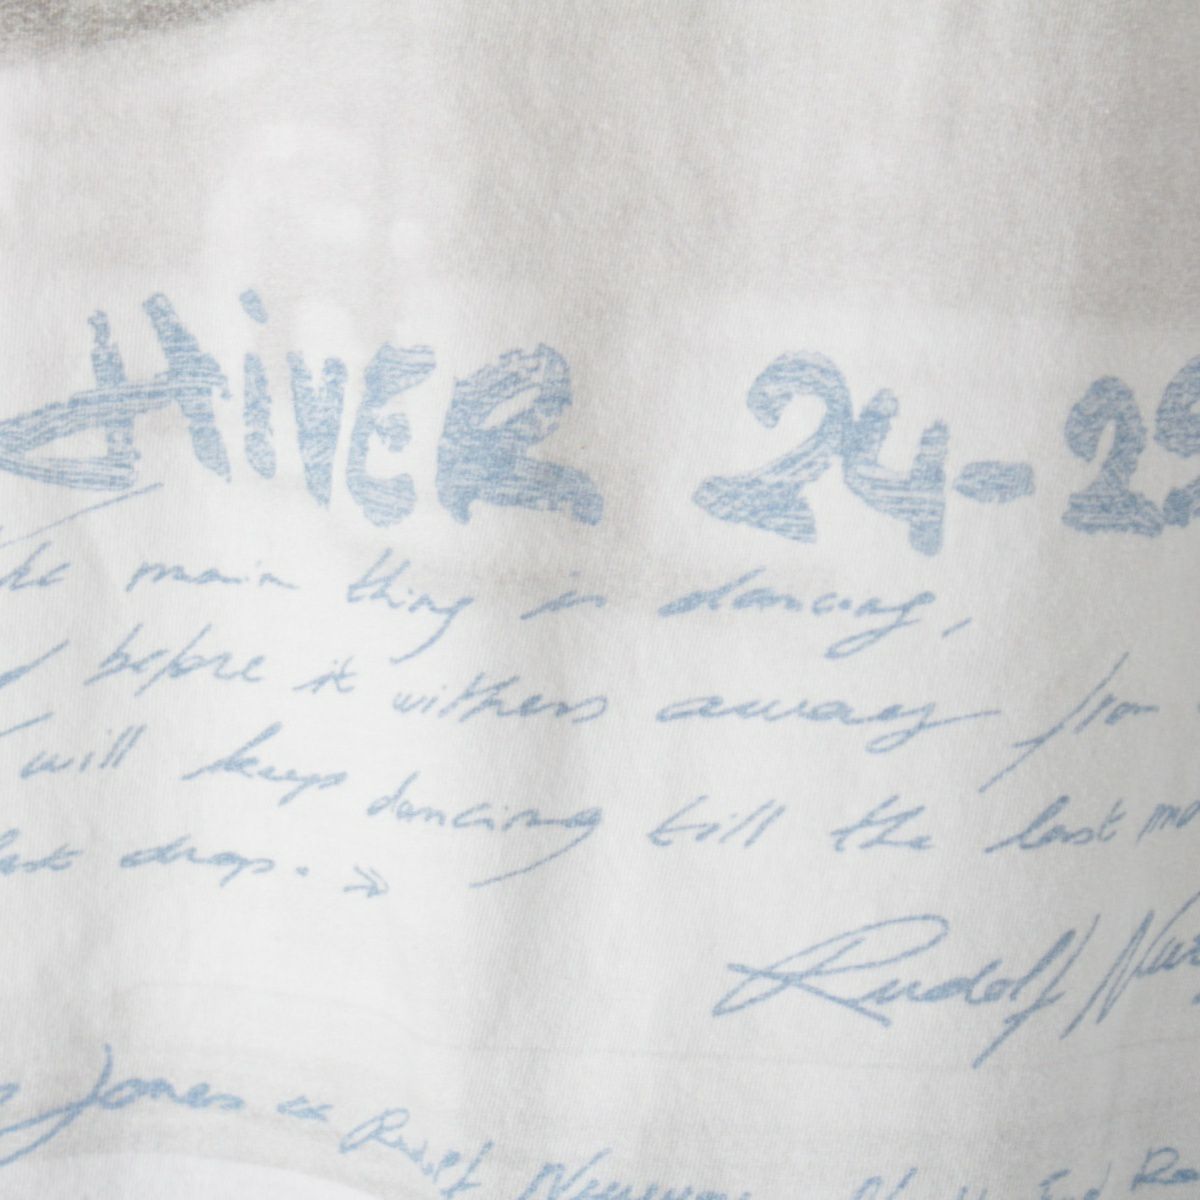 HiVER 24-25
The main thing is dancing,
before it withers away from
will keep dancing till the last
last drop. »
Rudolf
Jones « Rudolf